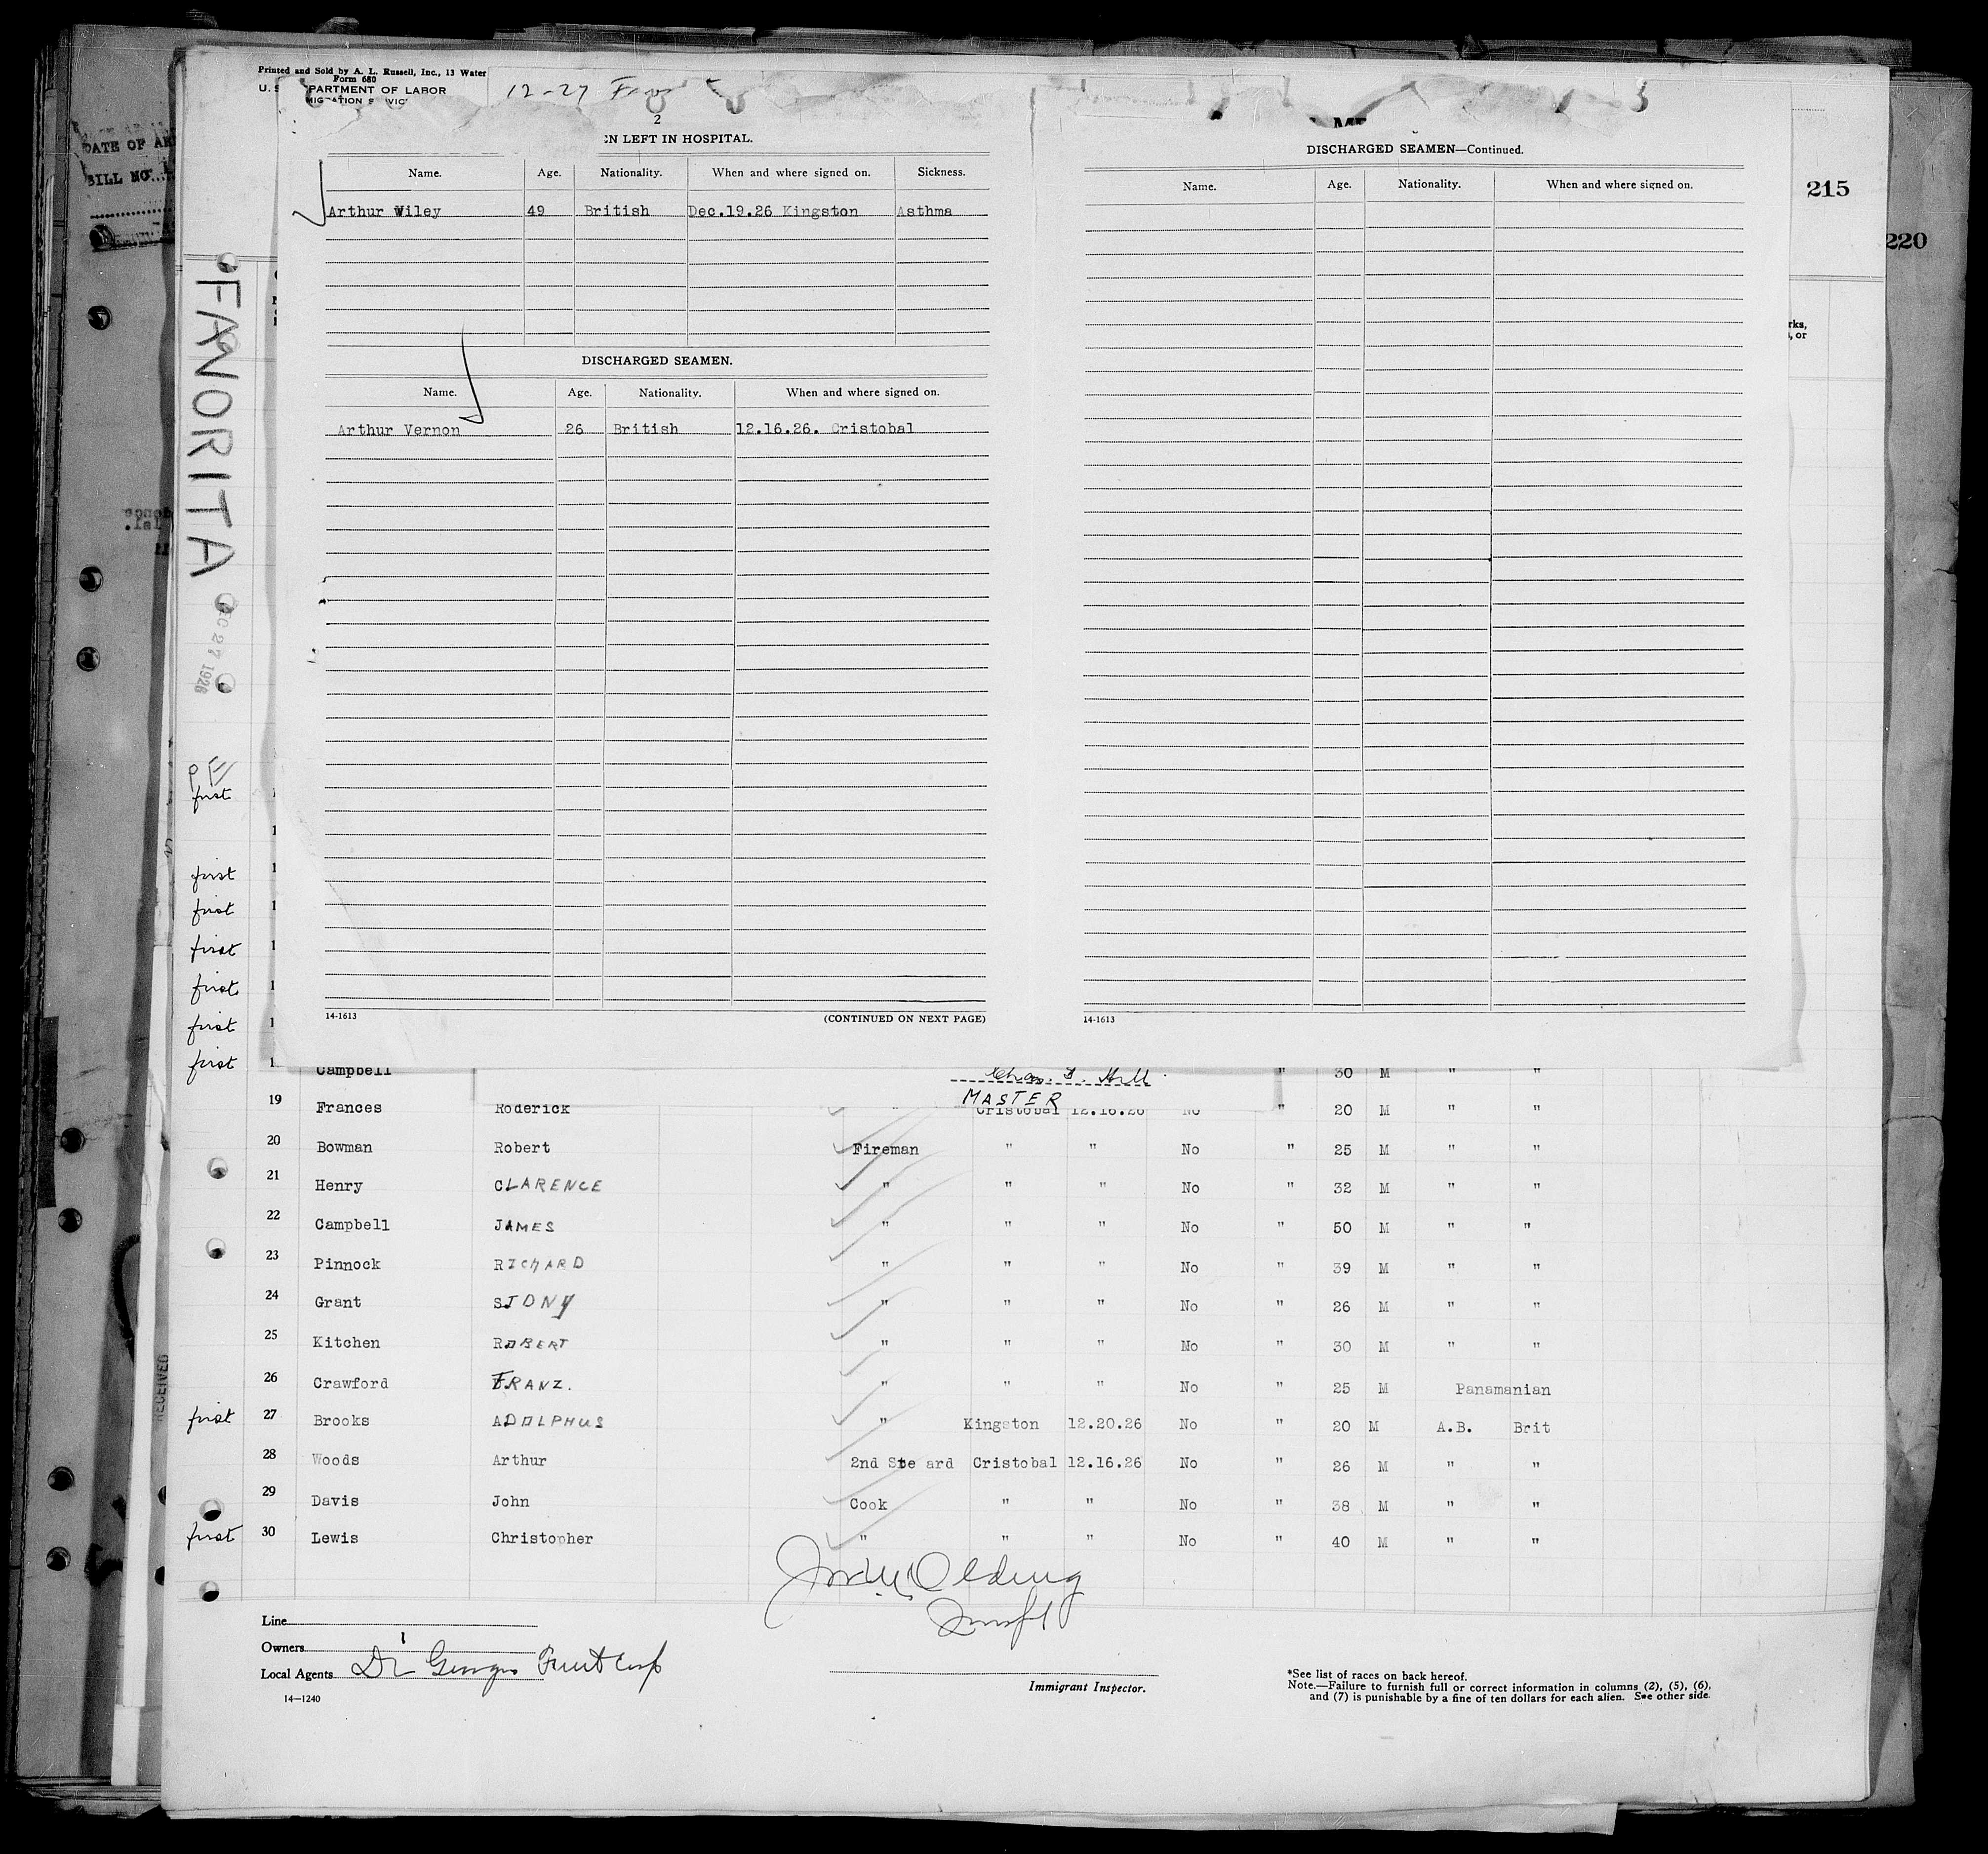 Printed and Sold by A. L. Russell, Inc., 13 Water
Form 680
PARTMENT OF LABOR
12-27
2
N LEFT IN HOSPITAL.
Name. Age. Nationality. When and where signed on. Sickness.
Arthur Wiley 49 British Dec.19.26 Kingston Asthma
DISCHARGED SEAMEN.
Name. Age. Nationality. When and where signed on.
Arthur Vernon 26 British 12.16.26. Cristobal
14-1613 (CONTINUED ON NEXT PAGE)
DISCHARGED SEAMEN—Continued.
Name. Age. Nationality. When and where signed on.
14-1613
215
220
rks,
, or
DATE OF AR
BILL NO.
FAVORITA
EC 27 1926
first
first
first
first
first
first
first
RECEIVED
Campbell 30 M " "
Chas. Hill
MASTER
19 Frances Roderick Cristobal 12.16.26 No " 20 M " "
20 Bowman Robert Fireman " " No " 25 M " "
21 Henry CLARENCE " " " No " 32 M " "
22 Campbell JAMES " " " No " 50 M " "
23 Pinnock RICHARD " " " No " 39 M " "
24 Grant SIDNY " " " No " 26 M " "
25 Kitchen ROBERT " " " No " 30 M " "
26 Crawford FRANZ. " " " No " 25 M Panamanian
first 27 Brooks ADOLPHUS " Kingston 12.20.26 No " 20 M A.B. Brit
28 Woods Arthur 2nd Ste ard Cristobal 12.16.26 No " 26 M " "
29 Davis John Cook " " No " 38 M " "
first 30 Lewis Christopher " " " No " 40 M " "
Line
Owners
Local Agents Di Giorgio Fruit Corp
14—1240
Immigrant Inspector.
*See list of races on back hereof.
Note.—Failure to furnish full or correct information in columns (2), (5), (6),
and (7) is punishable by a fine of ten dollars for each alien. See other side.